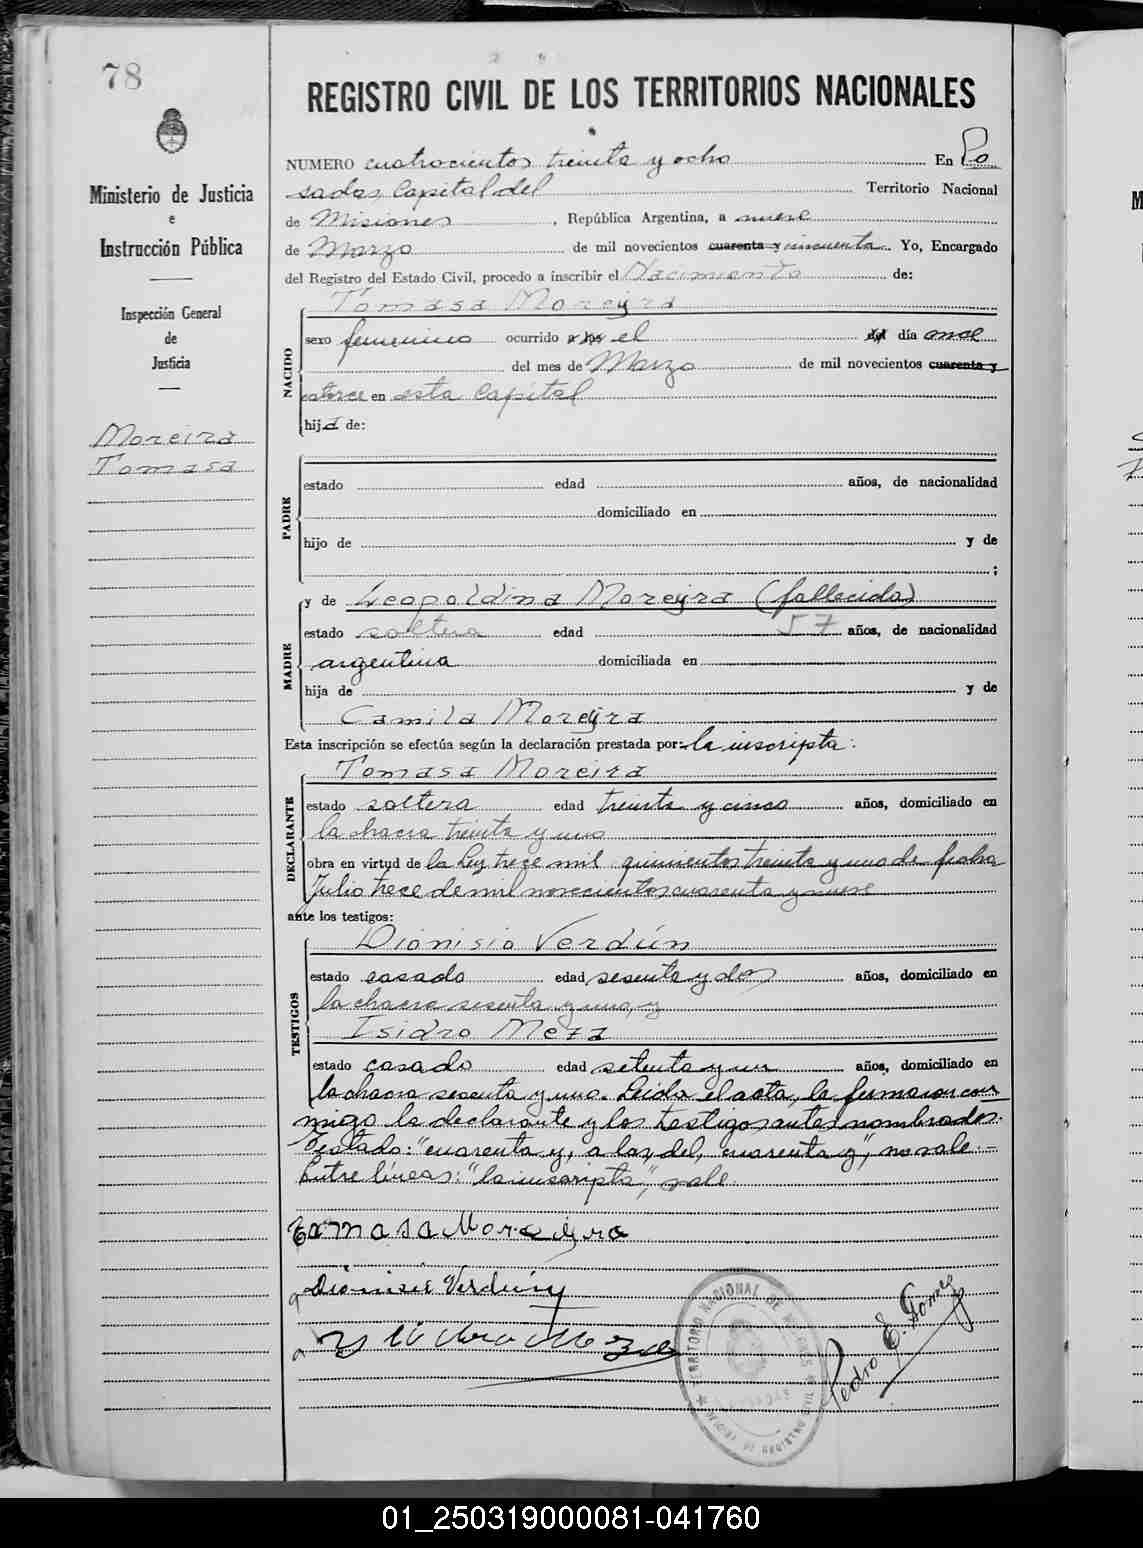 78
REGISTRO CIVIL DE LOS TERRITORIOS NACIONALES
Ministerio de Justicia
e
Instrucción Pública
Inspección General
de
Justicia
Moreira
Tomasa
NUMERO cuatrocientos treinta y ocho En Po
sadas, Capital del Territorio Nacional
de Misiones, República Argentina, a nueve
de Marzo de mil novecientos cuarenta y cincuenta. Yo, Encargado
del Registro del Estado Civil, procedo a inscribir el Nacimiento de:
Tomasa Moreyra
NACIDO
sexo femenino ocurrido a las el del día once
del mes de Marzo de mil novecientos cuarenta y
catorce en esta Capital
hija de:
PADRE
estado edad años, de nacionalidad
domiciliado en
hijo de y de
;
MADRE
y de Leopoldina Moreyra (fallecida)
estado soltera edad 57 años, de nacionalidad
argentina domiciliada en
hija de y de
Camila Moreyra
Esta inscripción se efectúa según la declaración prestada por: la inscripta:
DECLARANTE
Tomasa Moreira
estado soltera edad treinta y cinco años, domiciliado en
la chacra treinta y uno
obra en virtud de la Ley trece mil quinientos treinta y uno de fecha
Julio trece de mil novecientos cuarenta y nueve
ante los testigos:
TESTIGOS
Dionisio Verdún
estado casado edad sesenta y dos años, domiciliado en
la chacra sesenta y uno, y
Isidro Meza
estado casado edad setenta y un años, domiciliado en
la chacra sesenta y uno. Leida el acta, la firmaron con
migo la declarante y los testigos antes nombrados.
Testado: "cuarenta y, a las, del, cuarenta y", no vale.-
Entre líneas: "la inscripta", vale.
Tomasa Moreyra
Dionisio Verdún
Meza
Pedro E. Gómez
TERRITORIO NACIONAL DE MISIONES
01_250319000081-041760